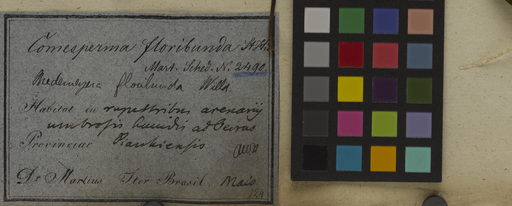 Comesperma floribunda
Mart. Sched. N. 2490
Bredemeyera floribunda Willd
Habitat in rupestribus arenariis
umbrosis humidis ad Oeiras
Provinciae Piauhiensis
Dr Martius Iter Brasil. Maio